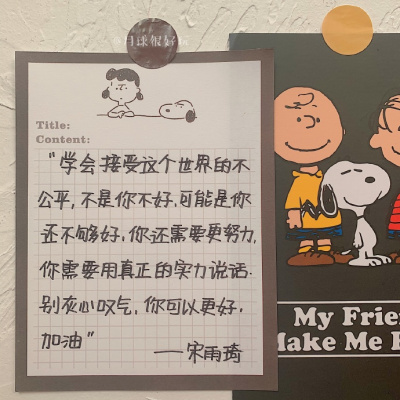 月球很好
Title:
Content:
"学会接受这个世界的不
公平,不是你不好,可能是你
还不够好,你还需要更努力,
你需要用真正的实力说话.
别灰心叹气,你可以更好,
加油"
——宋雨琦
My Frie
Make Me